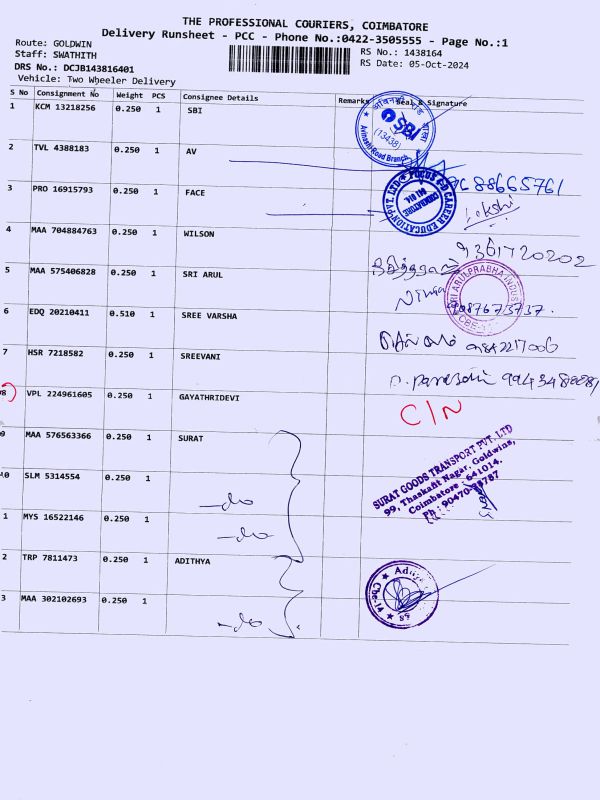 THE PROFESSIONAL COURIERS, COIMBATORE
Delivery Runsheet - PCC - Phone No.:0422-3505555 - Page No.:1
Route: GOLDWIN
Staff: SWATHITH
RS No.: 1438164
DRS No.: DCJB143816401
RS Date: 05-Oct-2024
Vehicle: Two Wheeler Delivery
S No Consignment No Weight PCS Consignee Details Remarks Seal & Signature
1 KCM 13218256 0.250 1 SBI
SBI
(13438)
Avinashi Road Branch
2 TVL 4388183 0.250 1 AV
9688665761
3 PRO 16915793 0.250 1 FACE
FOCUS 4-D CAREER EDUCATION PVT LTD
COIMBATORE
641 014
4 MAA 704884763 0.250 1 WILSON
9361720202
5 MAA 575406828 0.250 1 SRI ARUL
SRI ARULPRABHA INDUS
CBE-1
6 EDQ 20210411 0.510 1 SREE VARSHA
7 HSR 7218582 0.250 1 SREEVANI
8 VPL 224961605 0.250 1 GAYATHRIDEVI
C/N
9 MAA 576563366 0.250 1 SURAT
SURAT GOODS TRANSPORT PVT. LTD
99, Thaskafit Nagar, Goldwins,
Coimbatore - 641014.
Ph : 90470-38787
10 SLM 5314554 0.250 1
-do
1 MYS 16522146 0.250 1
-do
2 TRP 7811473 0.250 1 ADITHYA
3 MAA 302102693 0.250 1
-do